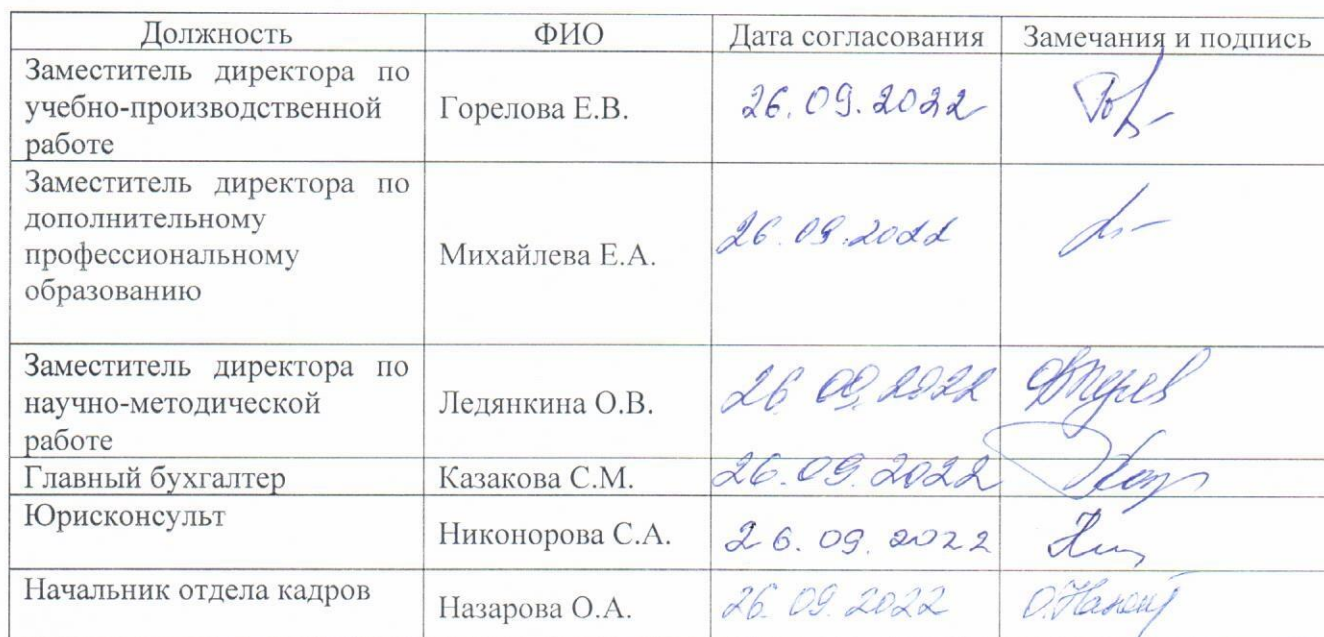 Должность ФИО Дата согласования Замечания и подпись
Заместитель директора по
учебно-производственной
работе
Горелова Е.В. 26.09.2022
Заместитель директора по
дополнительному
профессиональному
образованию
Михайлева Е.А. 26.09.2022
Заместитель директора по
научно-методической
работе
Ледянкина О.В. 26.09.2022
Главный бухгалтер Казакова С.М. 26.09.2022
Юрисконсульт Никонорова С.А. 26.09.2022
Начальник отдела кадров Назарова О.А. 26.09.2022